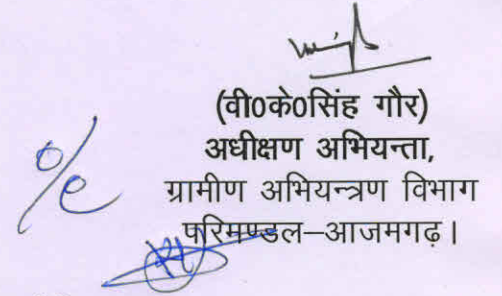 (वी0के0सिंह गौर)
अधीक्षण अभियन्ता,
ग्रामीण अभियन्त्रण विभाग
परिमण्डल–आजमगढ़।
o/c